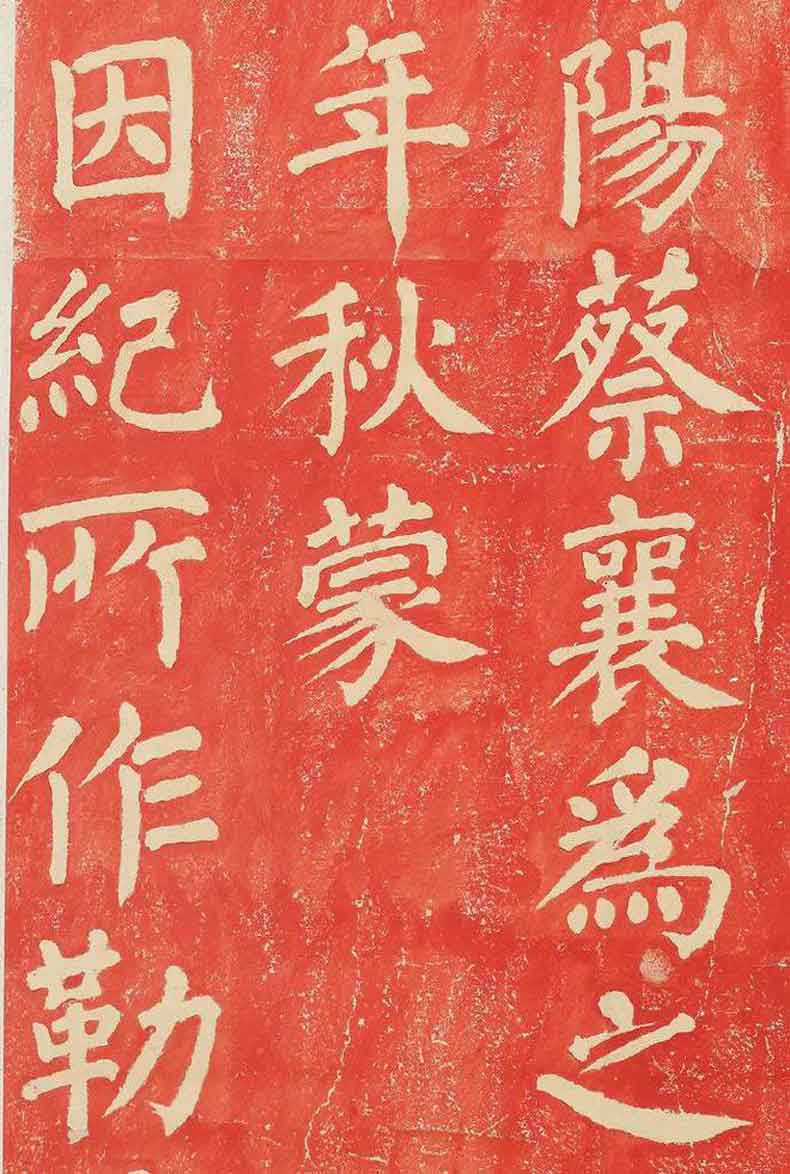 陽蔡襄爲之
年秋蒙
因紀所作勒